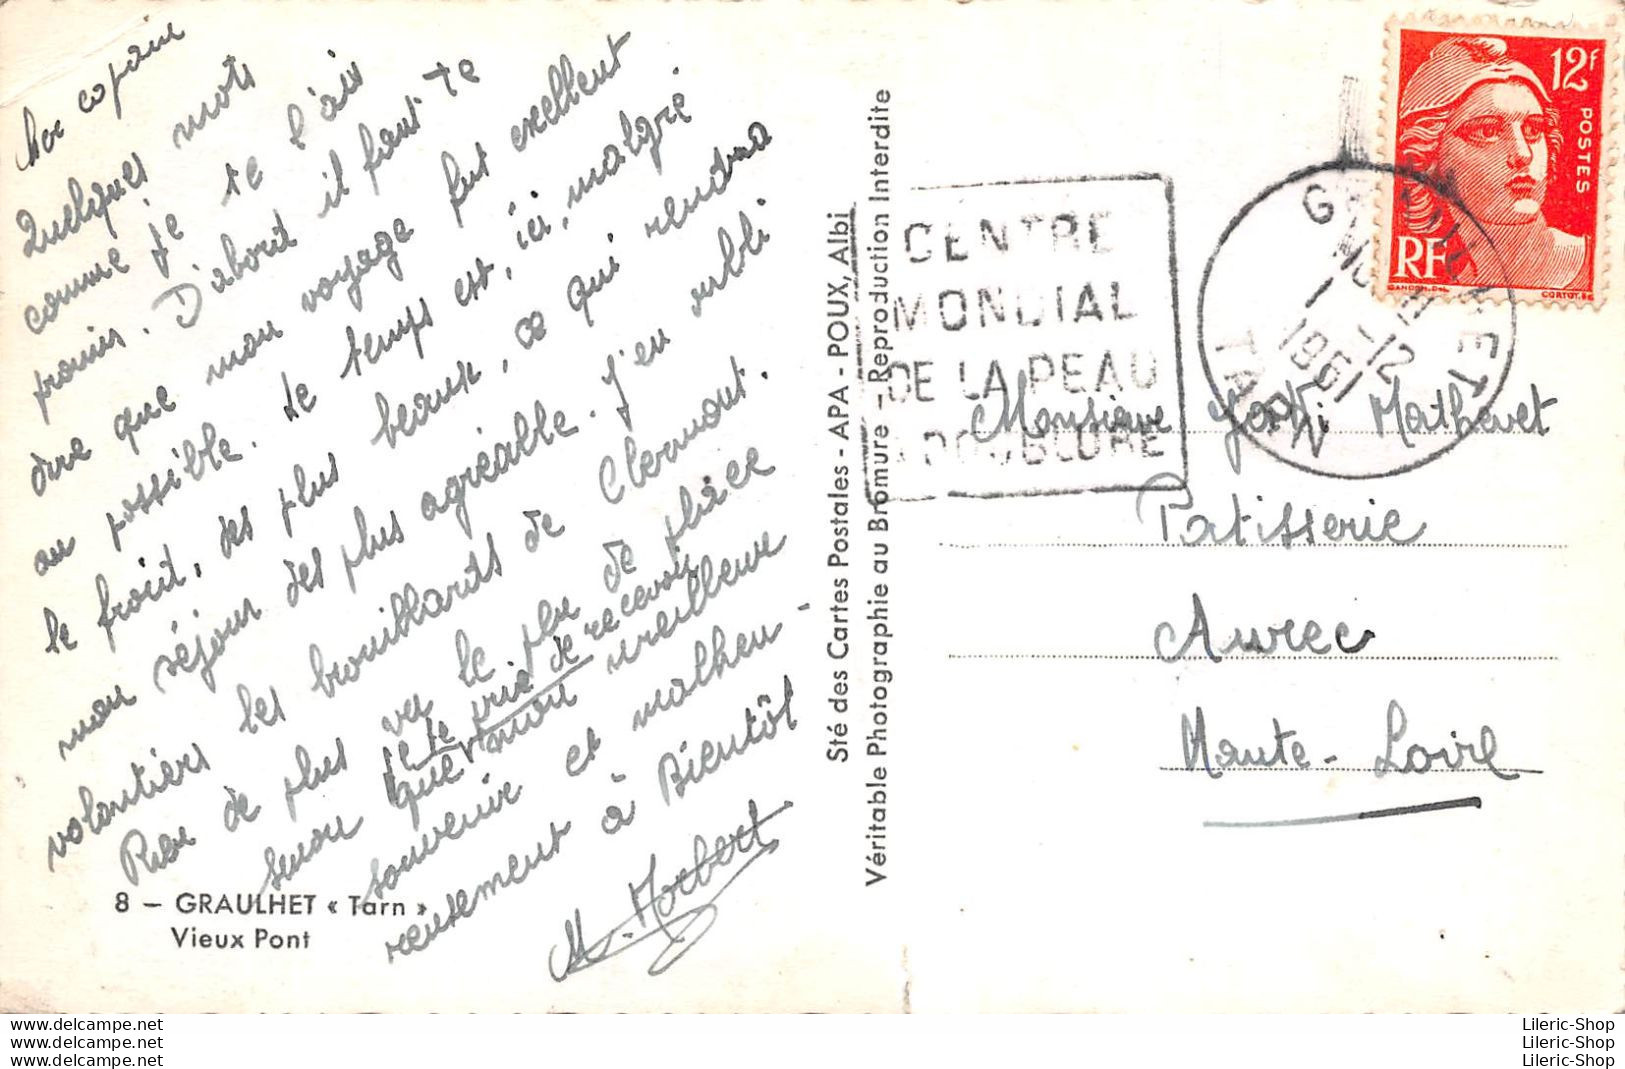 copain
Quelques mots
comme je te l'ais
promis. D'abord il faut te
dire que mon voyage fut excellent
au possible. Le temps est, ici, malgré
le froid, des plus beaux, ce qui rendra
mon séjour des plus agréable. J'en oubli
volontiers les brouillards de Clermont.
Rien de plus vu le peu de place
sinon que je te prie de recevoir
mon meilleure
souvenir et malheu-
reusement à Bientôt
8 – GRAULHET « Tarn »
Vieux Pont
Sté des Cartes Postales - APA - POUX, Albi
Véritable Photographie au Bromure - Reproduction Interdite
CENTRE
MONDIAL
DE LA PEAU
A DOUBLURE
GRAULHET
1 -12
1951
TARN
12f
POSTES
RF
GANDON.Del.
CORTOT.Sc
Monsieur Mathevet
Patisserie
Aurec
Haute-Loire
www.delcampe.net
www.delcampe.net
www.delcampe.net
Lileric-Shop
Lileric-Shop
Lileric-Shop